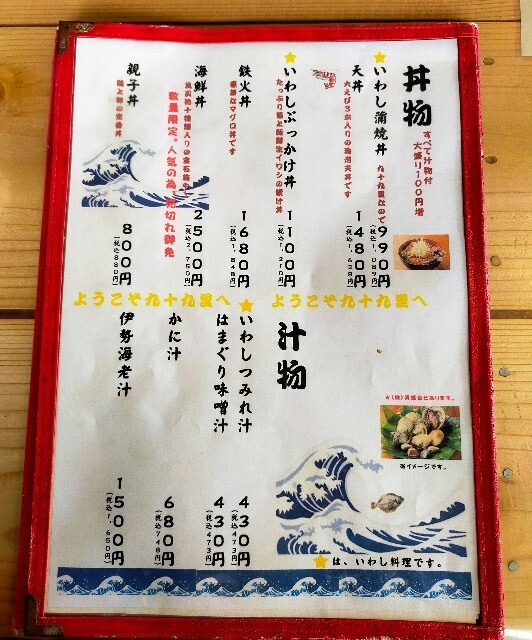 丼物
すべて汁物付
大盛り100円増
いわし蒲焼丼
九十九里なので
990円
(税込1,089円)
天丼
大えび3本入りの海老天丼です
1480円
(税込1,628円)
いわしぶっかけ丼
1100円
(税込1,210円)
鉄火丼
豪華なマグロ丼です
1680円
(税込1,848円)
海鮮丼
数量限定。人気の為、売切れ御免
2500円
(税込2,750円)
親子丼
800円
(税込880円)
ようこそ九十九里へ
ようこそ九十九里へ
汁物
いわしつみれ汁
430円
(税込473円)
はまぐり味噌汁
430円
(税込473円)
かに汁
680円
(税込748円)
伊勢海老汁
1500円
(税込1,650円)
※イメージです。
★は、いわし料理です。